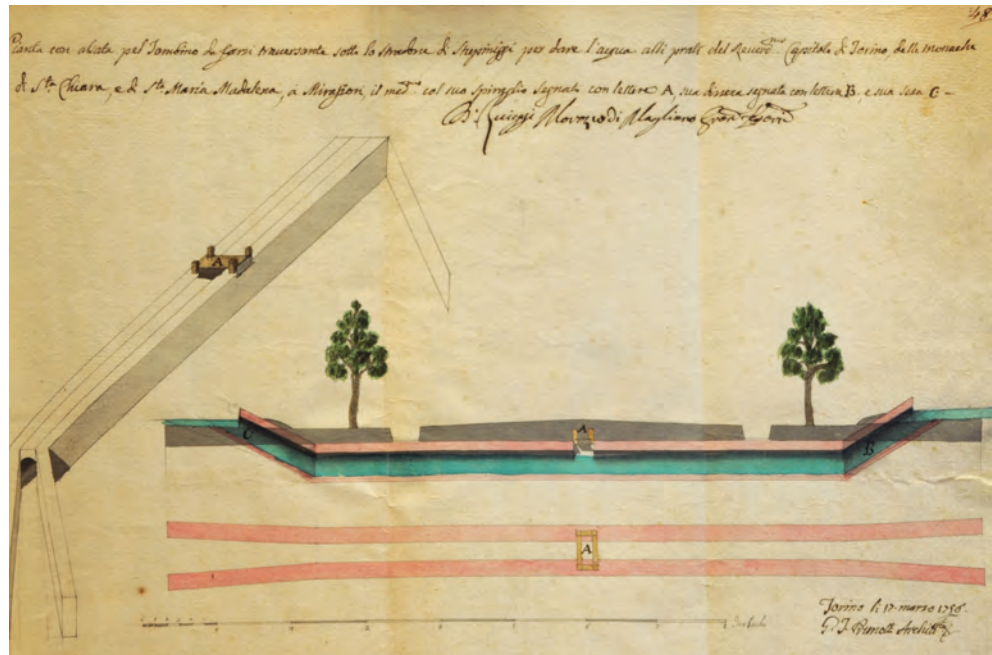 48
Pianta con alzata pel Tombino da farsi traversante sotto lo stradone di Stupiniggi per dare l'acqua alli prati del Reverd.mo Capitolo di Torino, delle monache
di S.ta Chiara, e di S.ta Maria Madalena, a Mirafiori, il med.mo col suo Spiraglio Segnato con lettere A, sua bocca segnata con lettera B, e sua C -
di Magliano
A
A
C
B
A
Torino li 17. marzo 1756.